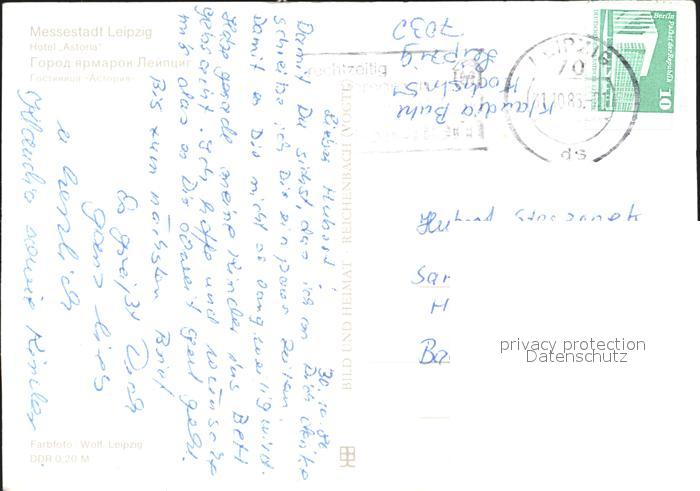 Messestadt Leipzig
Hotel „Astoria"
Город ярмарок Лейпциг
Гостиница «Астория»
30.10.86
Lieber Hubert!
Damit Du siehst, das ich an Dich denke
schreibe ich Dir ein paar Zeilen
damit es Dir nicht so langweilig wird.
Habe gerade meine Kinder ins Bett
gebracht. Ich hoffe und wünsche
mir das es Dir soweit gut geht.
Bis zum nächsten Brief
Es grüßt Dich
ganz lieb
u. herzlich
Klaudia sowie Kinder.
Farbfoto: Wolf, Leipzig
DDR 0,20 M
BILD UND HEIMAT REICHENBACH (VOGTL
Klaudia
Leipzig
7030
rechtzeitig
LEIPZIG
70
ds
Berlin Palast der Republik
10
DDR
Hubert
Sar
H
Ba
privacy protection
Datenschutz